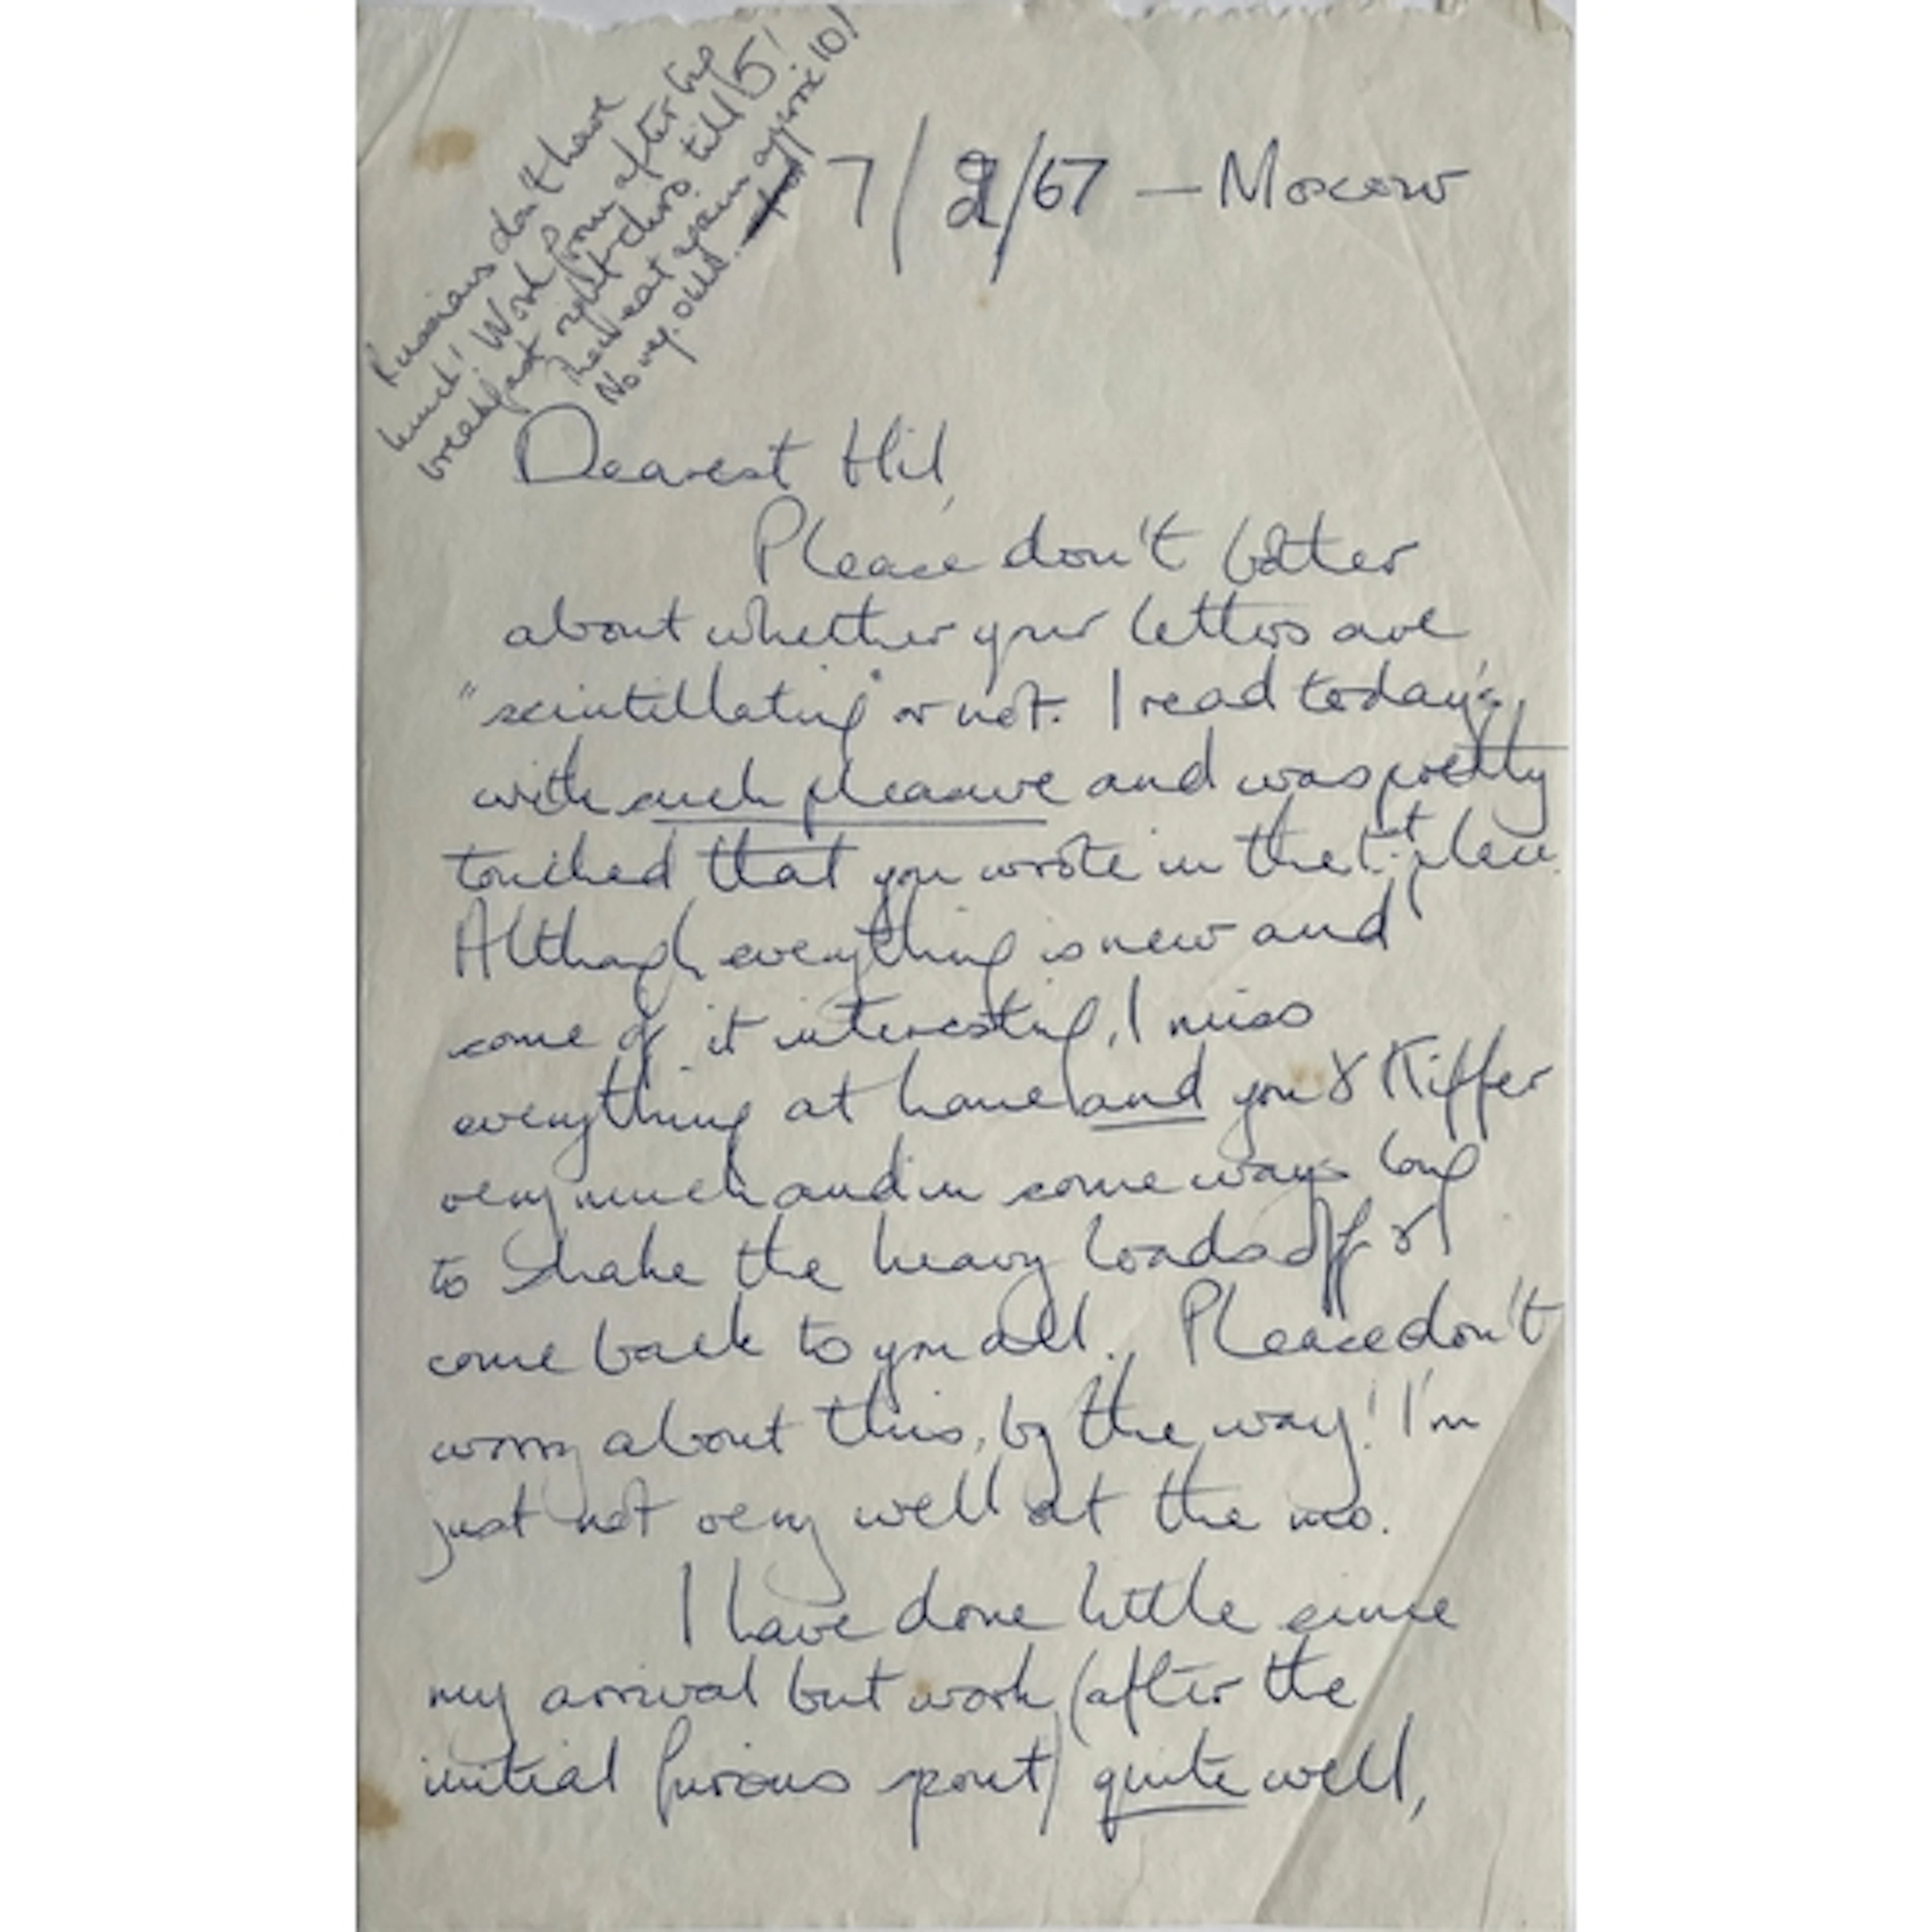 Russians don't have
lunch! Work from after big
breakfast right thro. till 5!
then eat again approx 10!
No veg. out
7/2/67 — Moscow
Dearest Hil,
Please don't bother
about whether your letters are
"scintillating" or not. I read today's
with such pleasure and was pretty
touched that you wrote in the 1st place.
Although everything is new and
some of it interesting, I miss
everything at home and you & Kiffer
very much and in some ways long
to shake the heavy loads off &
come back to you all. Please don't
worry about this, by the way! I'm
just not very well at the mo.
I have done little since
my arrival but work (after the
initial furious spout) quite well,